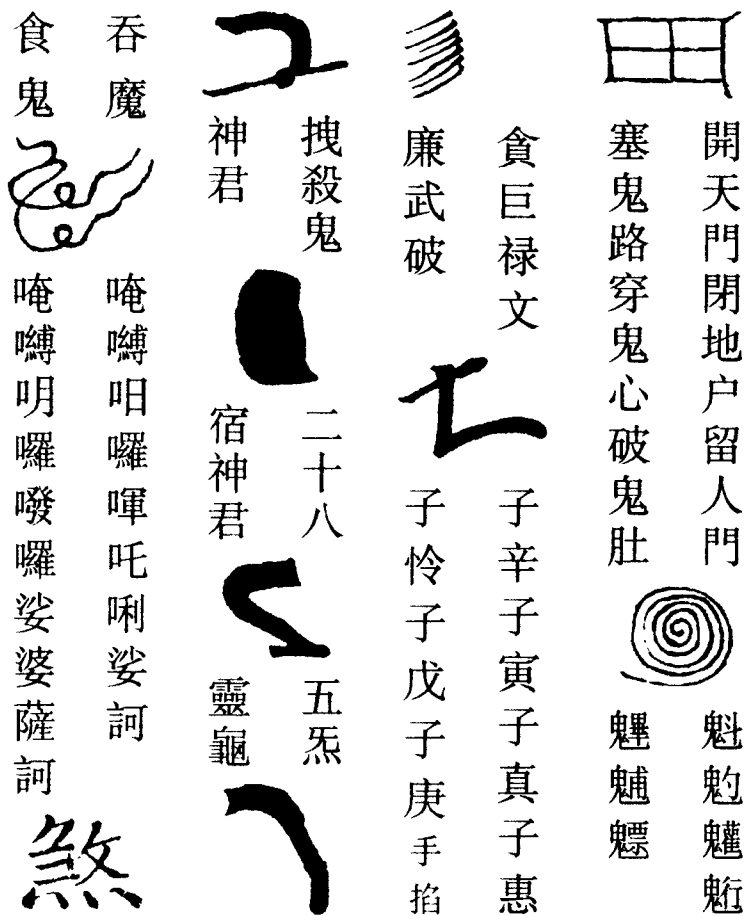 開天門閉地户留人門
塞鬼路穿鬼心破鬼肚
魁
魓魒
貪巨禄文
廉武破
子辛子寅子真子惠
子怜子戊子庚手掐
拽殺鬼
神君
二十八
宿神君
五炁
靈龜
吞魔
食鬼
唵嚩囉喗吒唎娑訶
唵嚩囉囉娑婆薩訶
煞